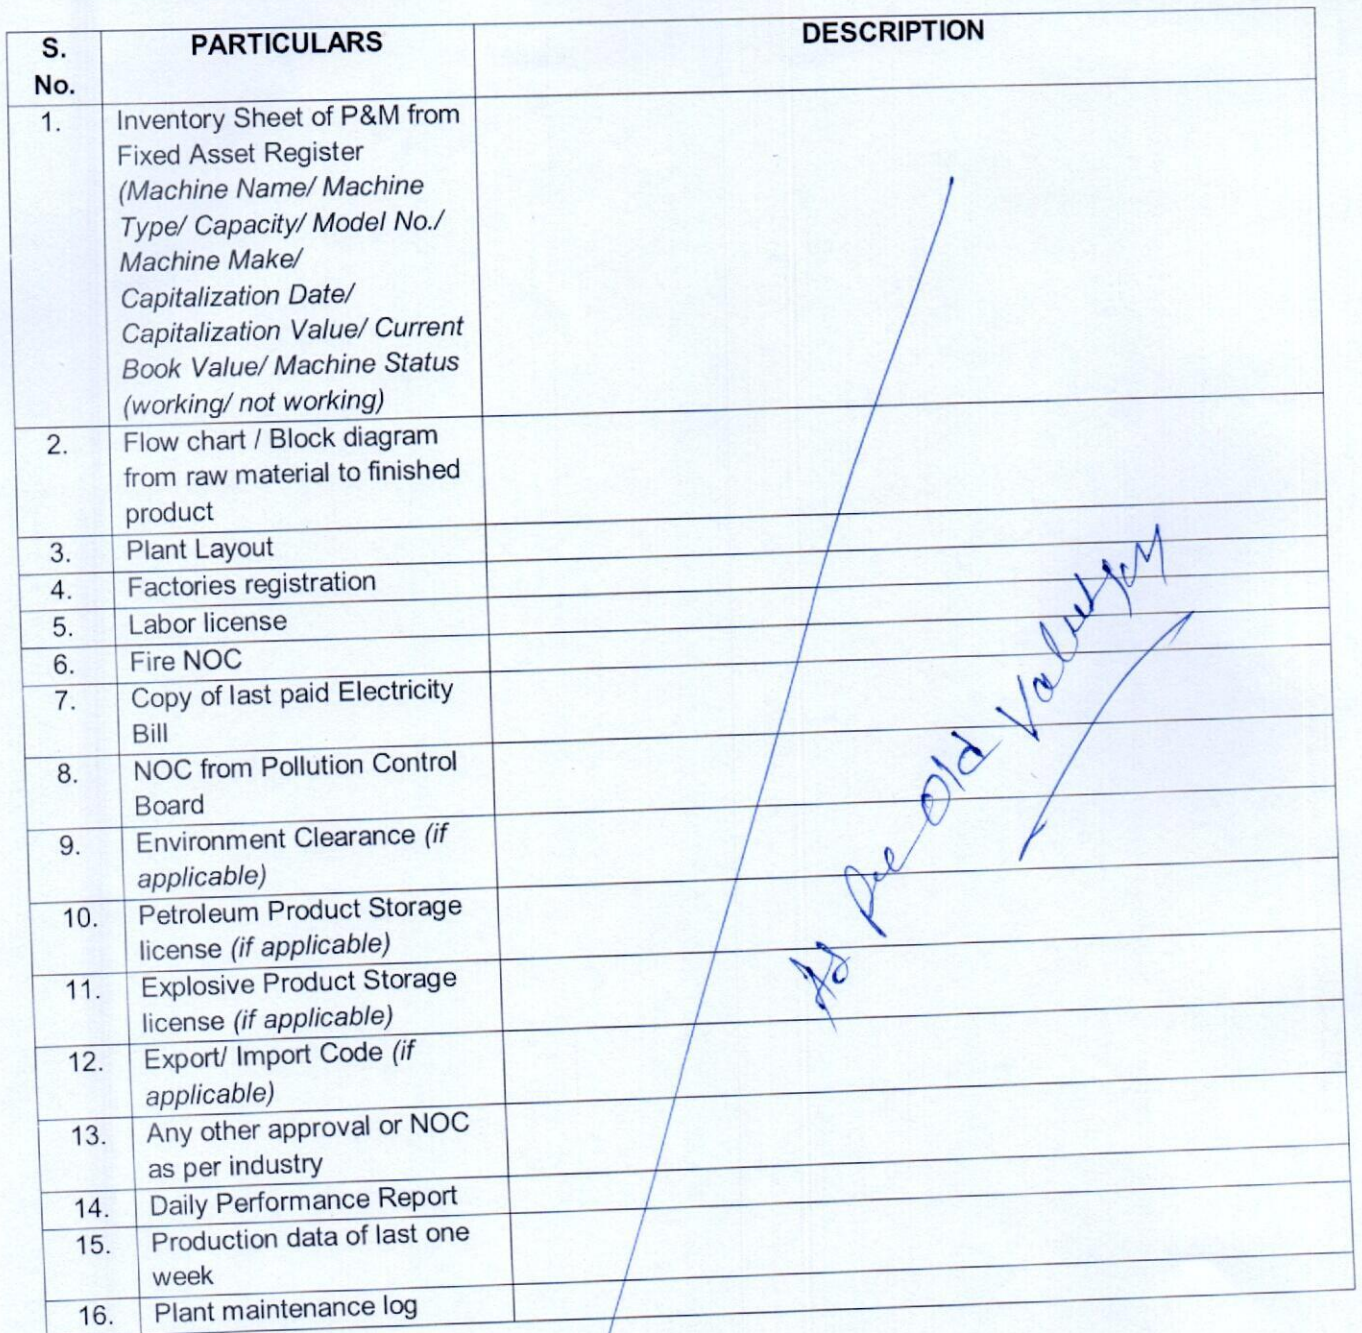 S. No. PARTICULARS DESCRIPTION
1. Inventory Sheet of P&M from
Fixed Asset Register
(Machine Name/ Machine
Type/ Capacity/ Model No./
Machine Make/
Capitalization Date/
Capitalization Value/ Current
Book Value/ Machine Status
(working/ not working)
2. Flow chart / Block diagram
from raw material to finished
product
3. Plant Layout
4. Factories registration
5. Labor license
6. Fire NOC
7. Copy of last paid Electricity
Bill
8. NOC from Pollution Control
Board
9. Environment Clearance (if
applicable)
10. Petroleum Product Storage
license (if applicable)
11. Explosive Product Storage
license (if applicable)
12. Export/ Import Code (if
applicable)
13. Any other approval or NOC
as per industry
14. Daily Performance Report
15. Production data of last one
week
16. Plant maintenance log
As Old